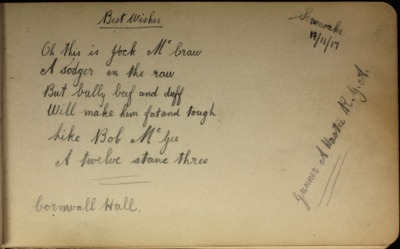 Best Wishes
Oh this is Jock McCraw
A Sodger in the raw
But bully beef and duff
Will make him fat and tough
Like Bob McGee
A twelve stane three
Cornwall Hall.
Sevenoaks
19/11/17
Gunner A R.G.A.